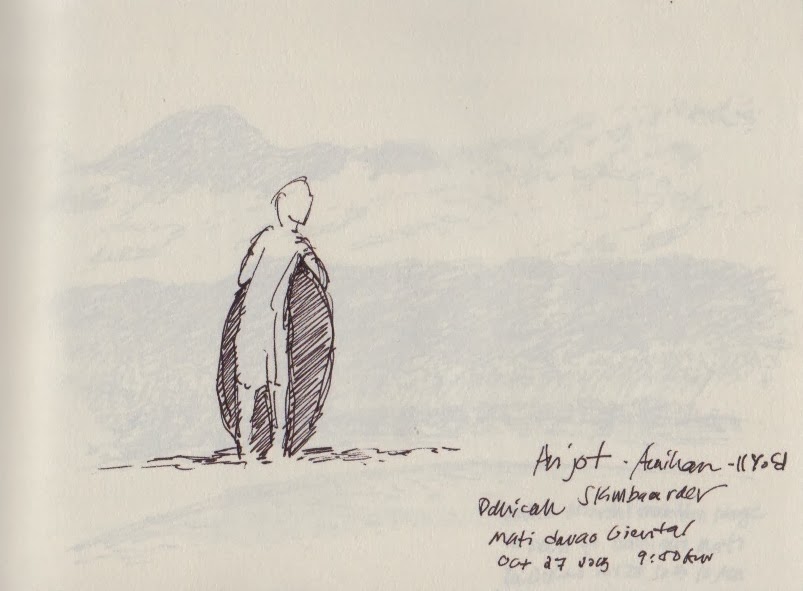 Arjot - Amihan - 11 Yold
Dahican Skimboarder
Mati davao Oriental
Oct 27 9:50am